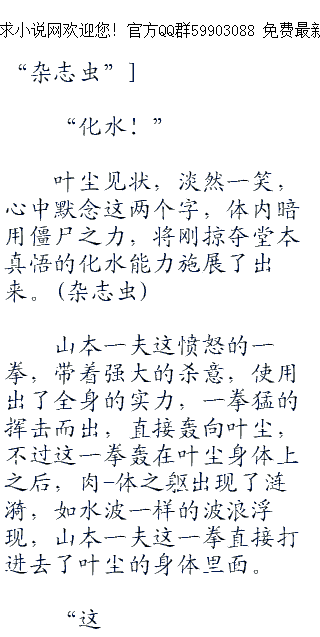 求小说网欢迎您! 官方QQ群59903088 免费最新
“杂志虫”]
“化水！”
叶尘见状，淡然一笑，
心中默念这两个字，体内暗
用僵尸之力，将刚掠夺堂本
真悟的化水能力施展了出
来。(杂志虫)
山本一夫这愤怒的一
拳，带着强大的杀意，使用
出了全身的实力，一拳猛的
挥击而出，直接轰向叶尘，
不过这一拳轰在叶尘身体上
之后，肉-体之躯出现了涟
漪，如水波一样的波浪浮
现，山本一夫这一拳直接打
进去了叶尘的身体里面。
“这